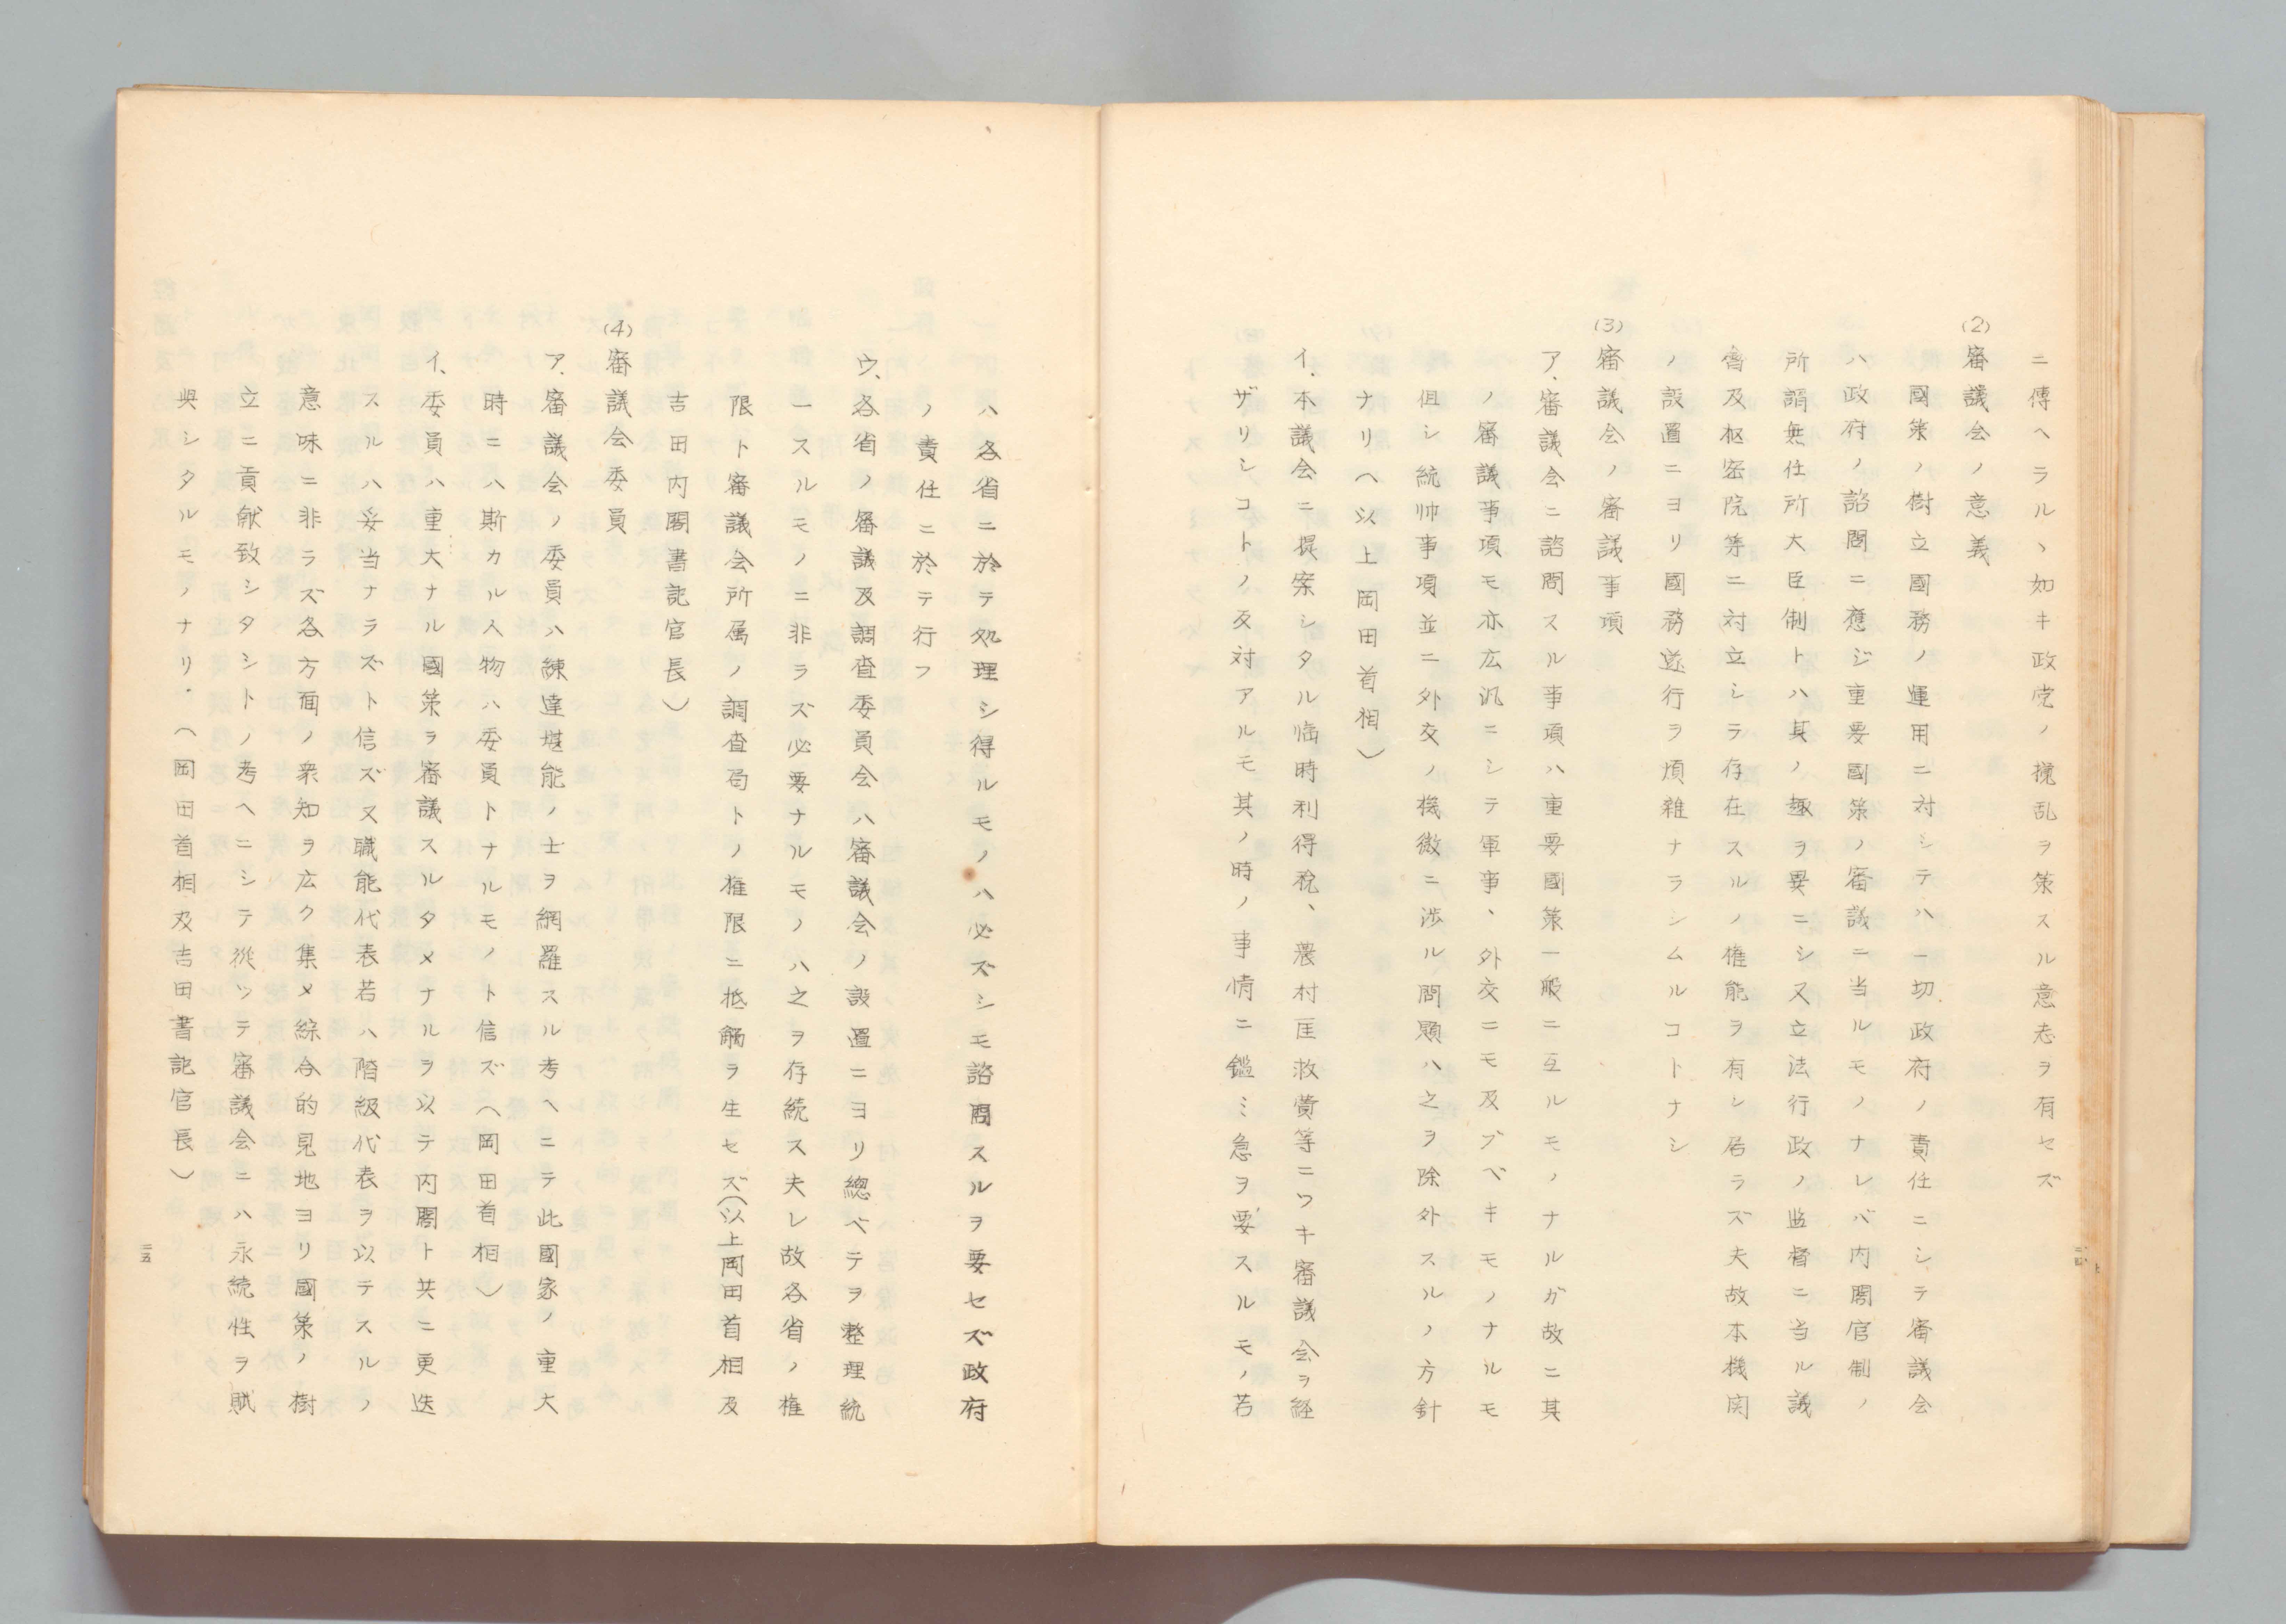 ニ傳ヘラルヽ如キ政党ノ攪乱ヲ策スル意志ヲ有セズ
(2) 審議会ノ意義
國策ノ樹立國務ノ運用ニ対シテハ一切政府ノ責任ニシテ審議会
ハ政府ノ諮問ニ應ジ重要國策ノ審議ニ当ルモノナレバ内閣官制ノ
所謂無任所大臣制トハ其ノ趣ヲ異ニシ又立法行政ノ監督ニ当ル議
會及枢密院等ニ対立シテ存在スルノ権能ヲ有シ居ラズ夫故本機関
ノ設置ニヨリ國務遂行ヲ煩雑ナラシムルコトナシ
(3) 審議会ノ審議事項
ア、審議会ニ諮問スル事項ハ重要國策一般ニ亙ルモノナルガ故ニ其
ノ審議事項モ亦広汎ニシテ軍事、外交ニモ及ブベキモノナルモ
但シ統帥事項並ニ外交ノ機微ニ渉ル問題ハ之ヲ除外スルノ方針
ナリ(以上岡田首相)
イ、本議会ニ提案シタル臨時利得税、農村匡救費等ニツキ審議会ヲ経
ザリシコトノ反対アルモ其ノ時ノ事情ニ鑑ミ急ヲ要スルモノ若
ハ各省ニ於テ処理シ得ルモノハ必ズシモ諮問スルヲ要セズ政府
ノ責任ニ於テ行フ
ウ、各省ノ審議及調査委員会ハ審議会ノ設置ニヨリ總ベテヲ整理統
一スルモノニ非ラズ必要ナルモノハ之ヲ存続ス夫レ故各省ノ権
限ト審議会所属ノ調査局トノ権限ニ抵觸ヲ生セズ(以上岡田首相及
吉田内閣書記官長)
(4) 審議会委員
ア、審議会ノ委員ハ練達堪能ノ士ヲ網羅スル考ヘニテ此國家ノ重大
時ニハ斯カル人物ハ委員トナルモノト信ズ(岡田首相)
イ、委員ハ重大ナル國策ヲ審議スルタメナルヲ以テ内閣ト共ニ更迭
スルハ妥当ナラズト信ズ又職能代表若ハ階級代表ヲ以テスルノ
意味ニ非ラズ各方面ノ衆知ヲ広ク集メ綜合的見地ヨリ國策ノ樹
立ニ貢献致シタシトノ考ヘニシテ従ツテ審議会ニハ永続性ヲ賦
與シタルモノナリ.(岡田首相及吉田書記官長)
二五